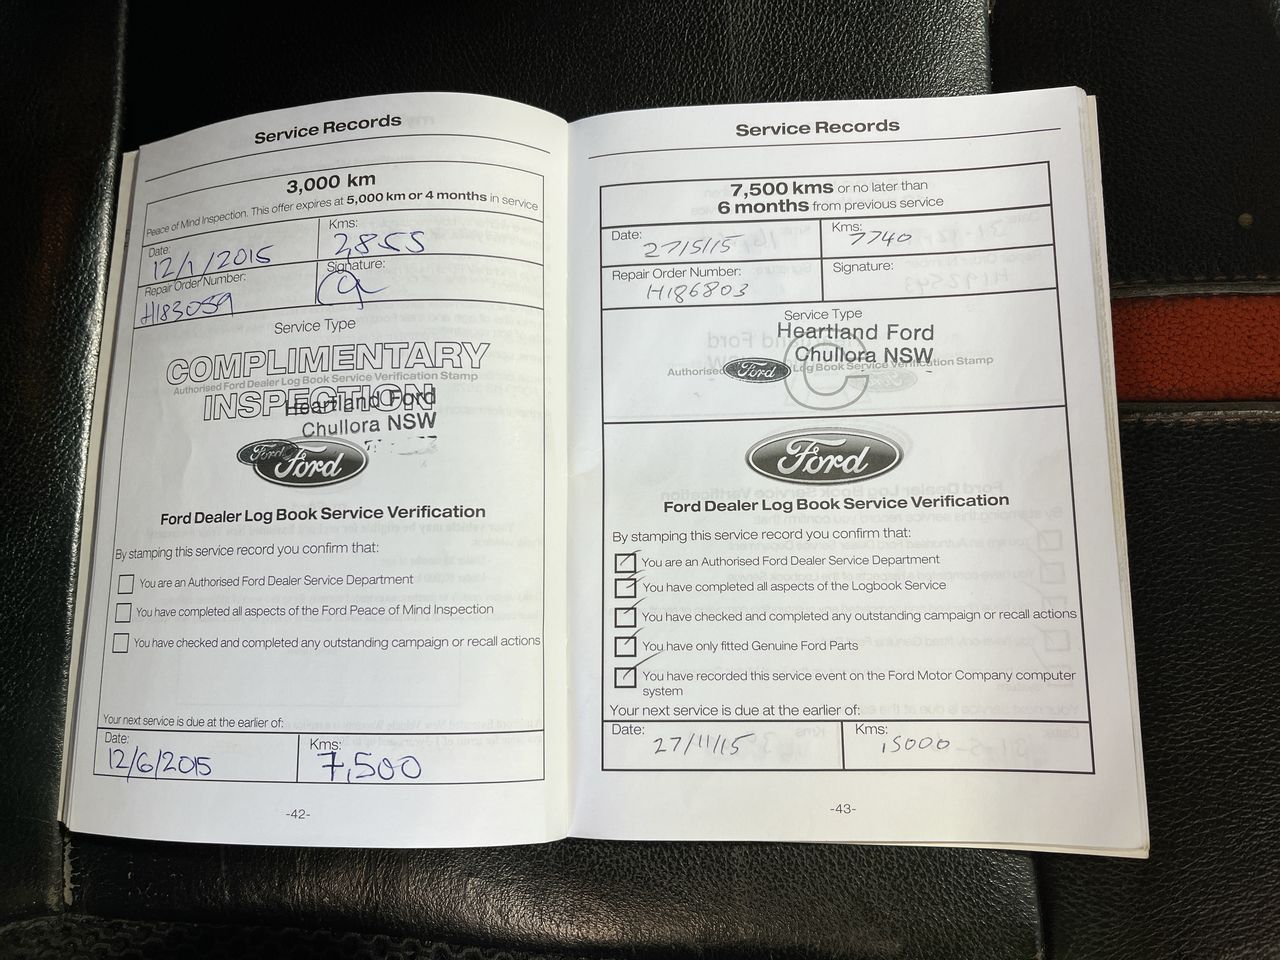 Service Records
3,000 km
Peace of Mind Inspection. This offer expires at 5,000 km or 4 months in service
Date: 12/1/2015
Kms: 2855
Repair Order Number: H183059
Signature:
Service Type
COMPLIMENTARY
Authorised Ford Dealer Log Book Service Verification Stamp
INSPECTION
Heartland Ford
Chullora NSW
Ford
Ford
Ford Dealer Log Book Service Verification
By stamping this service record you confirm that:
You are an Authorised Ford Dealer Service Department
You have completed all aspects of the Ford Peace of Mind Inspection
You have checked and completed any outstanding campaign or recall actions
Your next service is due at the earlier of:
Date: 12/6/2015
Kms: 7,500
-42-
Service Records
7,500 kms or no later than
6 months from previous service
Date: 27/5/15
Kms: 7740
Repair Order Number: H186803
Signature:
Service Type
Heartland Ford
Chullora NSW
C
Authorised Ford Log Book Service Verification Stamp
Ford
Ford Dealer Log Book Service Verification
By stamping this service record you confirm that:
You are an Authorised Ford Dealer Service Department
You have completed all aspects of the Logbook Service
You have checked and completed any outstanding campaign or recall actions
You have only fitted Genuine Ford Parts
You have recorded this service event on the Ford Motor Company computer
system
Your next service is due at the earlier of:
Date: 27/11/15
Kms: 15000
-43-